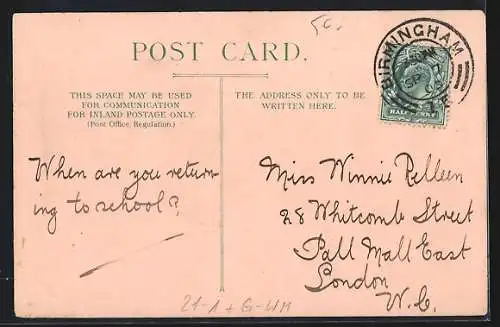 5c.
POST CARD.
BIRMINGHAM
HALFPENNY
THIS SPACE MAY BE USED
FOR COMMUNICATION
FOR INLAND POSTAGE ONLY.
(Post Office Regulation.)
THE ADDRESS ONLY TO BE
WRITTEN HERE.
When are you return-
ing to school?
Miss Winnie Pelleen
28 Whitcomb Street
Pall Mall East
London
W.C.
21-1 + G-WM